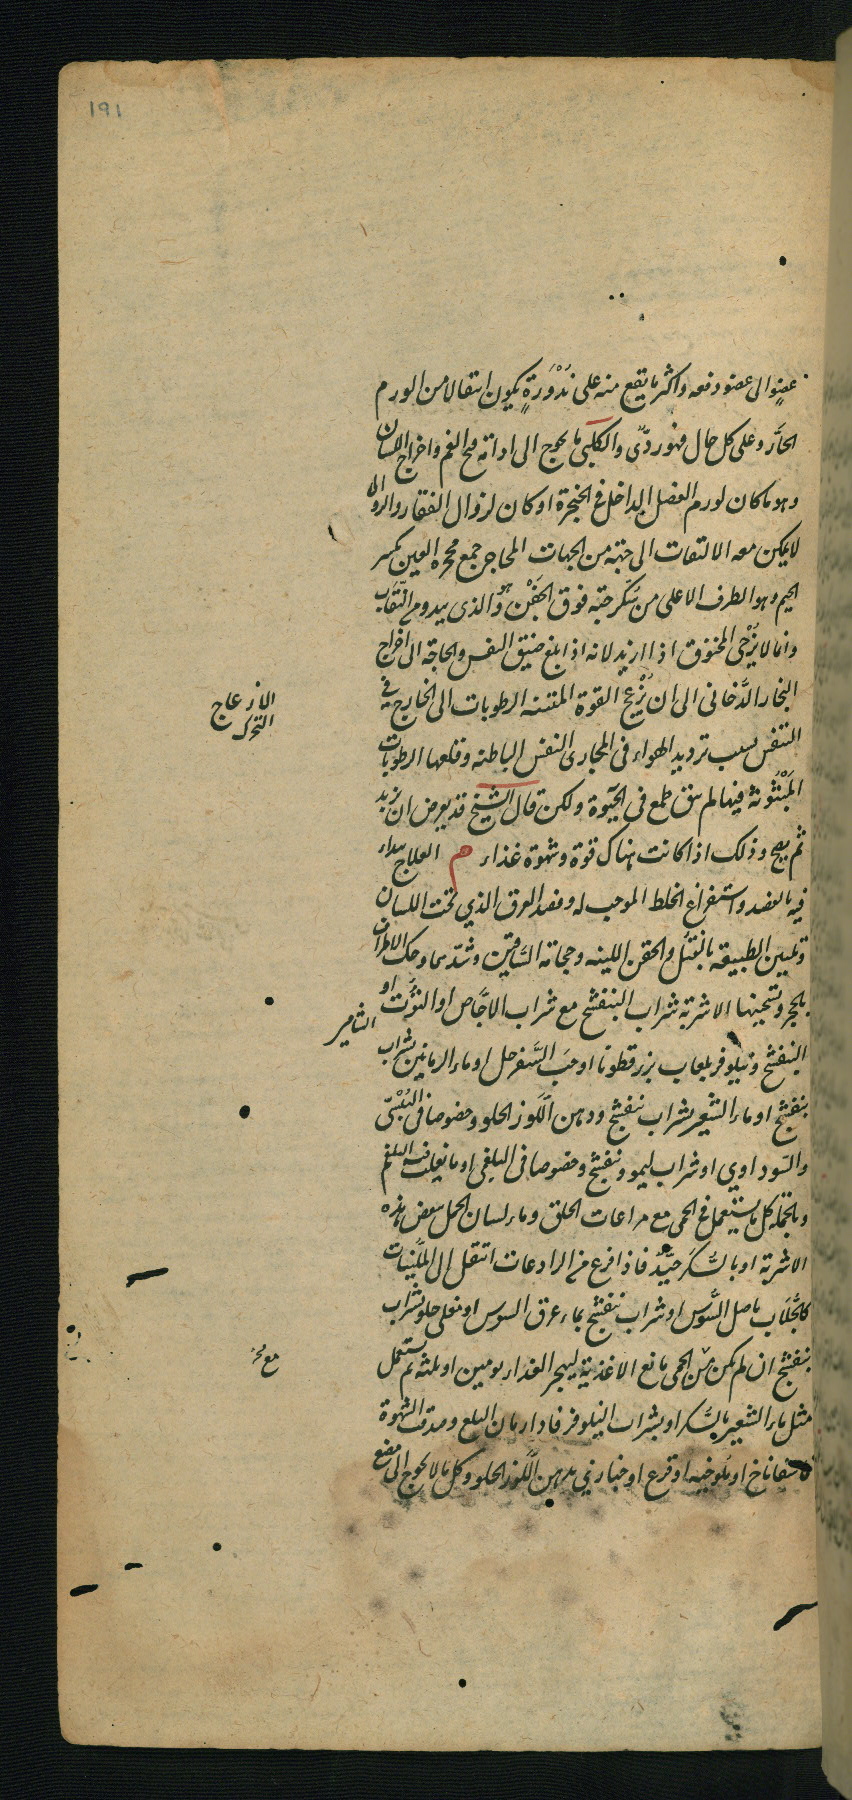 ١٩١
عضو الى عضو دفعه واكثر ما يقع منه على نُدْوَرَةٍ يكون انتقالا من الورم
الحارّ وعلى كل حال فهو ردىّ والكلبى ما يحوج الى ادامة فتح الفم واخراج اللسان
وهو ما كان لورم العضل الداخل فى الحنجرة او كان لزوال الفقار والذى
لا يمكن معه الالتفات الى جنبه من الجهات المحاجر جمع محجر العين بكسر
الجيم وهو الطرف الاعلى من فوق الجَفْن والذى يبدو من النِّقَاب
وانما لا يُرْجى المخنوق اذا ازبد لانه اذا بلغ ضيق النفس والحاجة الى اخراج
البخار الدُّخانى الى ان تُزْعِج القوة الرطوبات الى الخارج فى
التنفس بسبب ترديد الهواء فى المجارى النفس الباطنة وقلعها الرطوبات
المَبْثُوثة فيها لم يبق طمع فى الحَيٰوة ولكن قال الشيخ قد يعرض ان يزبد
ثم يصح وذلك اذا كانت هناك قوة وشهوة غذاء م العلاج يبداء
فيه بالفصد واستفراغ الخلط الموجب له وفصد العرق الذي تحت اللسان
وتليين الطبيعة بالفتل والحقن اللينة وحجامة السَّاقين وشدّهما وحك الاطراف
بالحجر وتسخينها الاشربة شراب البنفسج مع شراب الاجَّاص او التُّوت او
البنفسج ونيلوفر بلعاب بزرقطونا او حَب السَّفرجل او ماء الرمانين بشراب
بنفسج او ماء الشعير بشراب بنفسج ودهن اللَّوز الحلو وخصوصا فى اليُبْسىّ
والسّوداوي او شراب ليمو وبنفسج وخصوصا فى البلغمى او ما يغلب فيه البلغم
وبالجملة كل ما يستعمل فى الحمى مع مراعات الحلق وماء لسان الحمل ببعض هذه
الاشربة او بالسُّكر جيّد فاذا فرغ من الرادعات انتقل الى المليّنات
كالجُلّاب باصل السُّوس او شراب بنفسج بماء عرق السوس او مغلى حلو بشراب
بنفسج ان لم يكن من الحمى مانع الاغذية ليهجر الغذاء يومين او ثلثه ثم يستعمل
مثل ماء الشعير بالسُّكر او بشراب النيلوفر فاذا امكن البلع وصدقت الشهوة
فاسفاناخ او ملوخيه او قرع او خبازى بدهن اللَّوز الحلو وكل ما لا يحوج الى مضغ
الازعاج
التحرك